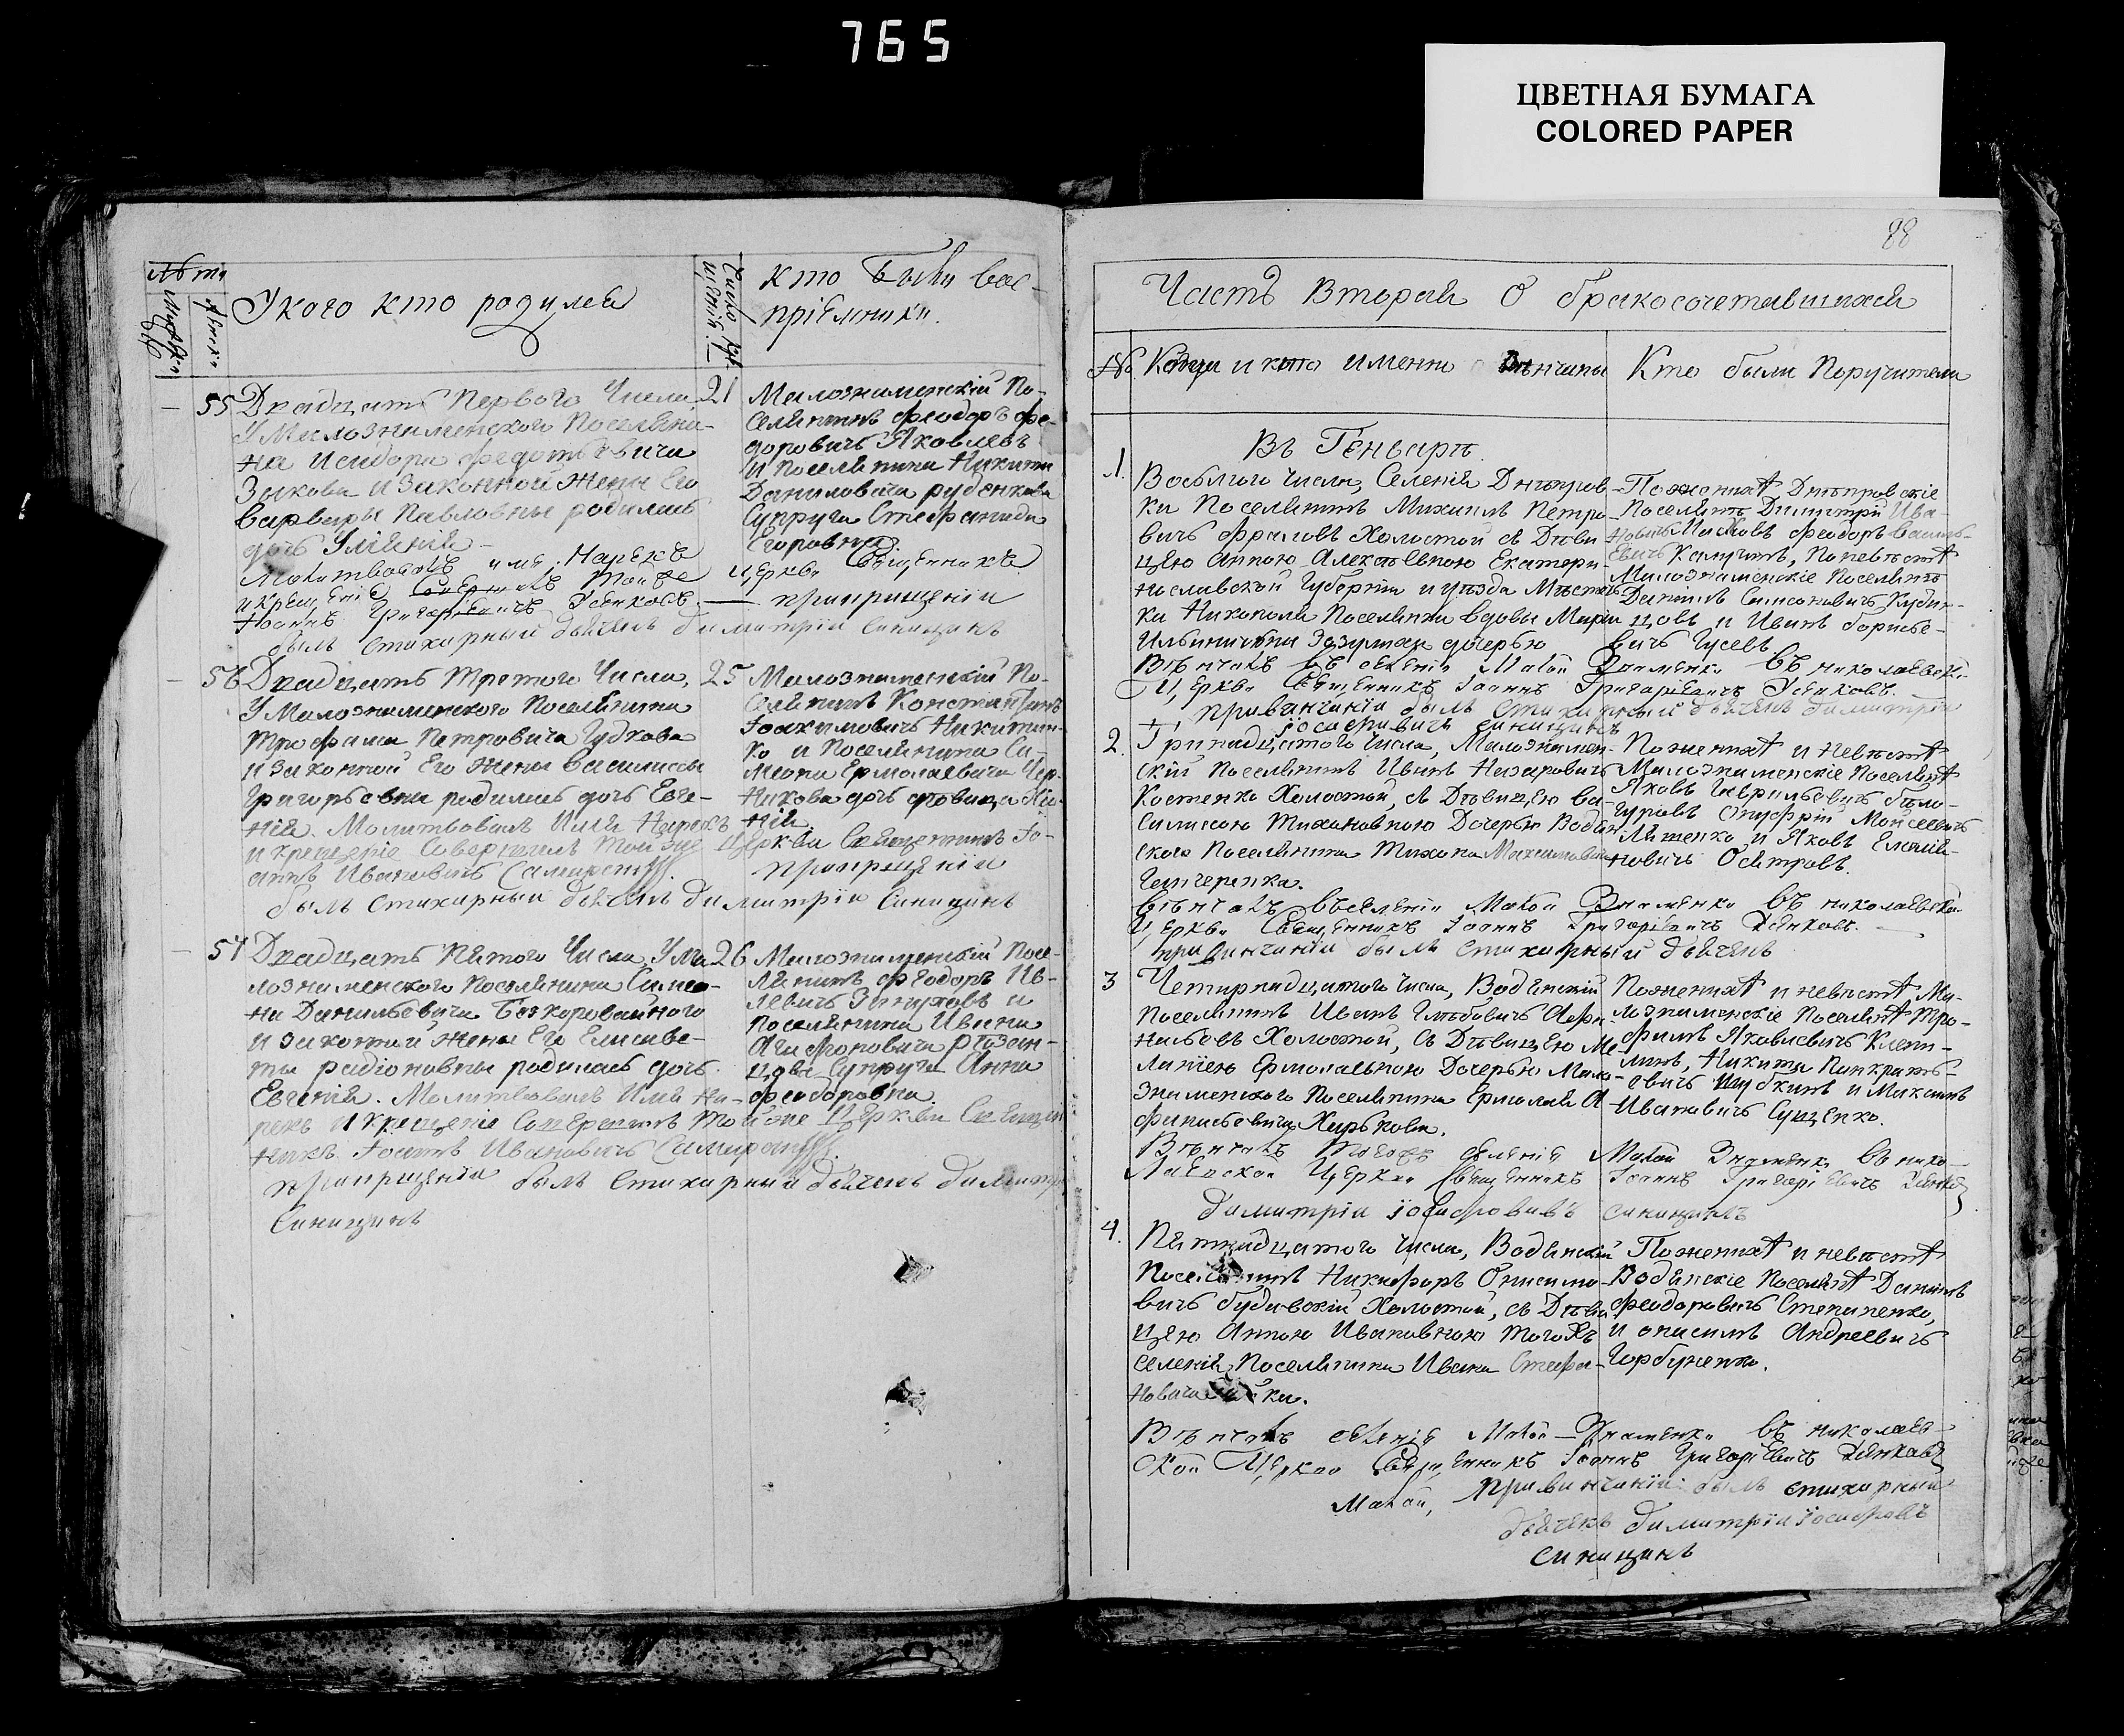 765
ЦВЕТНАЯ БУМАГА
COLORED PAPER
88
У кого кто родился
кто были вос-
пріемники.
55 Двадцать Перваго Числа, 21
У Малознаменского Поселяни-
на Исидора
Зыкова и Законной Жены Его
Варвары Павловны родилась
дочь
Молитвовалъ имя Нарекъ
и крещеніе Совершилъ тойже
Іоаннъ Григоріевичъ
былъ Стихарный дьячекъ Димитрій Синицинъ
Малознаменскій По-
селянинъ Феодоръ Фе-
доровичъ Яковлевъ
и поселянина Никиты
Даниловича руденкова
Супруга Стефанида
Егоровна
церкви Священникъ
прикрищеніи
56 Двадцать третого Числа, 25
У Малознаменского Поселянина
Трофима Петровича Гудкова
и Законной Его жены Василисы
Григорьевны родилась дочь Евге-
нія. Молитвовалъ Имя Нарекъ
и крещеніе Совершилъ тойже Церкви Священникъ Іо-
аннъ Ивановичъ
прикрищеніи
былъ Стихарный дьячекъ Димитрій Синицинъ
Малознаменскій По-
селянинъ Константинъ
Іоакимовичъ Никитин-
ко и Поселянина Си-
меона Ермолаевича Чер-
никова дочь девица
57 Двадцать Пятого Числа, У Ма- 26
лознаменского Поселянина Симео-
на Данильевича Безкоровайного
и законной жены Его Елисаве-
ты радіоновны родилась дочь
Евгенія. Молитвовалъ Имя На-
рекъ и Крещеніе Совершилъ Тойже Церкви Священ
никъ Іоаннъ Ивановичъ
прикрищеніи былъ Стихарный дьячекъ Димитрій
Синицинъ
Малознаменскій Посе-
лянинъ Феодоръ
и
поселянина Ивана
Агафоновича
Супруга Анна
Феодоровна.
Часть Вторая О бракосочетавшихся
№ Когда и кто именно Вѣнчаны
Кто были Поручители
Въ Генваръ.
1. Восьмого Числа, Селенія Днѣпров-
ки Поселянинъ Михаилъ Петро-
вичъ Фроловъ Холостой съ Дѣви-
цею Анною Алексѣевною Екатери-
нославской Губерніи и уѣзда Мѣстеч-
ки Никополя Поселянки вдовы Маріи
Ильиничны дочерью
Вѣнчалъ въ селеніи Малой Знаменки въ николаевской
Церкви Священникъ Іоаннъ Григоріевичъ
привинчаніи былъ Стихарный дьячекъ Димитрій
іосифовичъ Синицинъ
По женихѣ Днѣпровскіе
Поселянѣ Димитрій Ива-
новичъ Феодоръ Василь-
евичъ По невѣстѣ
Малознаменскіе Поселянѣ
Даніилъ Самсоновичъ Кудин-
цовъ и Иванъ борисе-
вичъ Гусевъ.
2. Тринадцатого Числа, Малознамен-
скій Поселянинъ Иванъ Назаровичъ
Костенко Холостой, съ Дѣвицею Ва-
силисою Тихоновною Дочерью Водян-
ского Поселянина Тихона
Чемеренка.
Вѣнчалъ въ селеніи Малой Знаменки въ николаевской
Церкви Священникъ Іоаннъ Григоріевичъ
привинчаніи былъ стихарный дьячекъ
По женихѣ и невѣстѣ
Малознаменскіе Поселянѣ
Яковъ Гаврильевичъ бѣло-
гуровъ Онуфрій Мойсеевичъ
Ляшенко и Яковъ Емелья-
новичъ Осетровъ.
3 Четырнадцатого Числа, Водянскій
Поселянинъ Иванъ Глѣбовичъ Афа-
насьевъ Холостой, съ Дѣвицею Ме-
ланіею Ермолаевною Дочерью Мало-
знаменского Поселянина Ермолая А-
фанасьевича Харькова.
Вѣнчалъ селенія Малой Знаменки въ нико-
лаевской Церкви Священникъ Іоаннъ Григоріевичъ
Димитрій іосифовичъ Синицинъ
По женихѣ и невѣстѣ Ма-
лознаменскіе Поселянѣ Тро-
фимъ Яковлевичъ
Никита Панкрать-
евичъ Шубкинъ и Максимъ
Ивановичъ Сущенко.
4. Пятнадцатого Числа, Водянский
Поселянинъ Никифоръ Онисимо-
вичъ Холостой, съ Дѣви-
цею Анною Ивановною того жъ
селенія Поселянина Ивана Стефа-
новича
Вѣнчалъ селенія Малой Знаменки въ николаев-
ской Церкви Священникъ Іоаннъ Григоріевичъ
Малой, привинчаніи былъ стихарный
дьячекъ Димитрій іосифовъ
Синицинъ
По женихѣ и невѣстѣ
Водянскіе Поселянѣ Даніилъ
Феодоровичъ Степаненко,
и онисимъ Андреевичъ
Горбуненко.